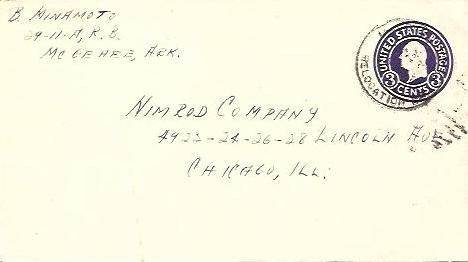 B. MINAMOTO
29-11-A, R.B.
MC GEHEE, ARK.
UNITED STATES POSTAGE
3 CENTS 3
RELOCATION
NIMROD COMPANY
4922-24-26-28 LINCOLN AVE
CHICAGO, ILL.